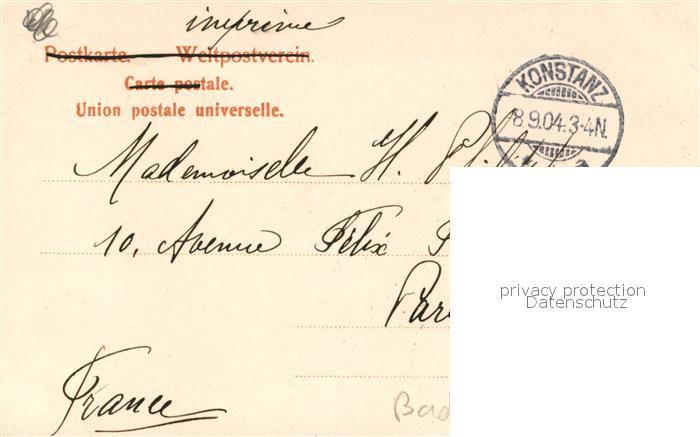 imprimé
Postkarte. Weltpostverein.
Carte postale.
Union postale universelle.
KONSTANZ
8.9.04.3-4N.
Mademoiselle H.
10, Avenue Félix
Par
France
Bad
privacy protection
Datenschutz